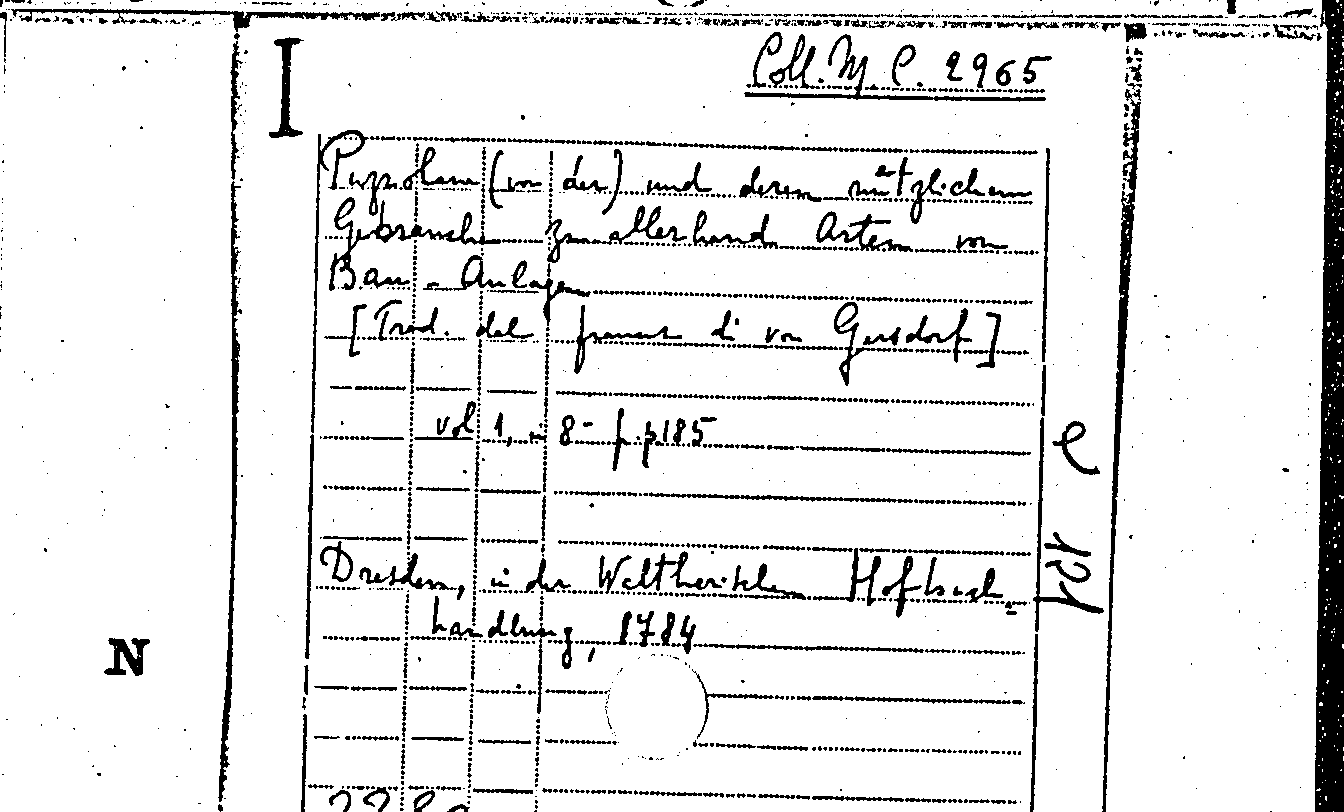 I
Coll. M. C. 2965
Puzzolane (von der) und deren nützlichem
Gebrauche zu allerhand Arten von
Bau - Anlagen
[Trad. dal franc. di von Gersdorf]
vol 1, in 8- pp. 185
Dresden, in der Waltherischen Hofbuch=
handlung, 1784
N